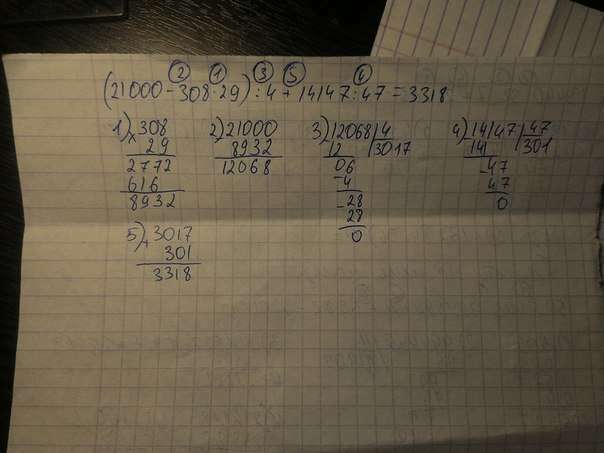 ② ① ③ ⑤ ④
(21000-308·29):4+14147:47=3318
1) × 308
29
2772
616
8932
2) - 21000
8932
12068
3) 12068 | 4
12 | 3017
06
- 4
- 28
28
0
4) 14147 | 47
141 | 301
- 47
47
0
5) + 3017
301
3318